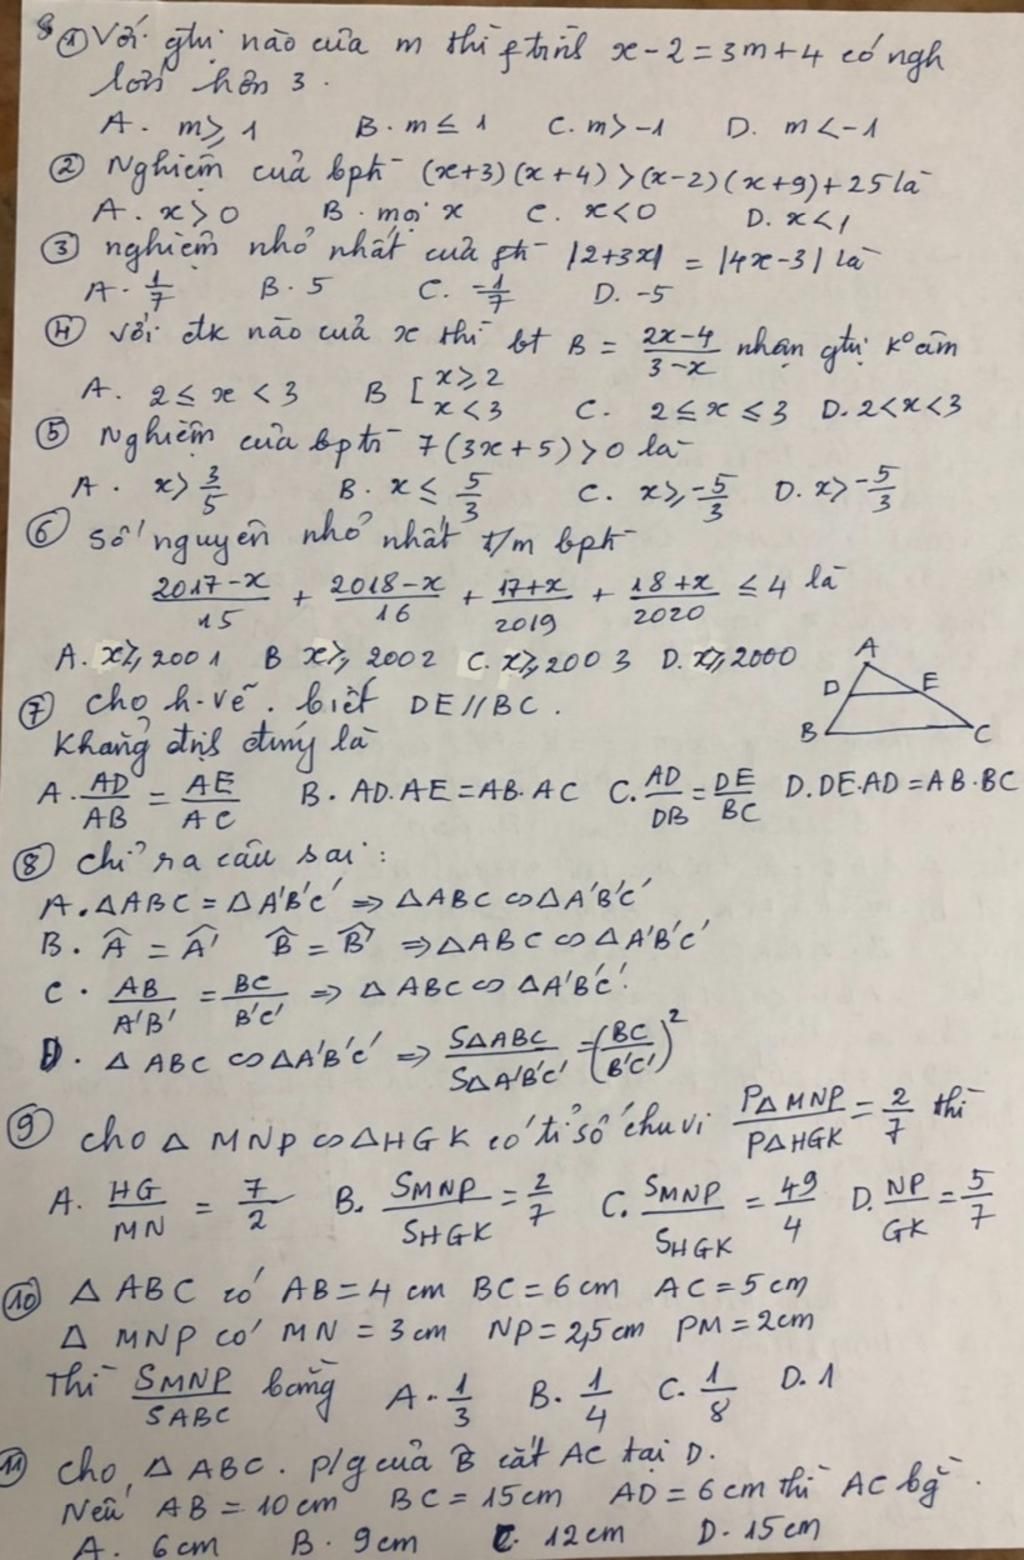 8 ① Với gtrị nào của m thì ptrình x - 2 = 3m + 4 có ngh
lớn hơn 3.
A. m ≥ 1 B. m ≤ 1 C. m > -1 D. m < -1
② Nghiệm của bpt (x+3)(x+4) > (x-2)(x+9) + 25 là
A. x > 0 B. mọi x C. x < 0 D. x < 1
③ nghiệm nhỏ nhất của pt |2+3x| = |4x-3| là
A. 1/7 B. 5 C. -1/7 D. -5
④ với đk nào của x thì bt B = (2x-4)/(3-x) nhận gtrị K° âm
A. 2 ≤ x < 3 B [ x ≥ 2 x < 3 C. 2 ≤ x ≤ 3 D. 2 < x < 3
⑤ Nghiệm của bptr 7(3x+5) > 0 là
A. x > 3/5 B. x ≤ 5/3 C. x ≥ -5/3 D. x > -5/3
⑥ Số nguyên nhỏ nhất t/m bpt
(2017-x)/15 + (2018-x)/16 + (17+x)/2019 + (18+x)/2020 ≤ 4 là
A. x ≥ 2001 B x ≥ 2002 C. x ≥ 2003 D. x ≥ 2000
A
D E
B C
⑦ Cho h.vẽ. biết DE // BC.
Khẳng định đúng là
A. AD/AB = AE/AC B. AD.AE = AB.AC C. AD/DB = DE/BC D. DE.AD = AB.BC
⑧ Chỉ ra câu sai:
A. ΔABC = ΔA'B'C' ⇒ ΔABC ∽ ΔA'B'C'
B. Â = Â' B̂ = B̂' ⇒ ΔABC ∽ ΔA'B'C'
C. AB/A'B' = BC/B'C' ⇒ ΔABC ∽ ΔA'B'C'.
D. ΔABC ∽ ΔA'B'C' ⇒ SΔABC/SΔA'B'C' = (BC/B'C')²
⑨ Cho ΔMNP ∽ ΔHGK có tỉ số chu vi PΔMNP/PΔHGK = 2/7 thì
A. HG/MN = 7/2 B. SMNP/SHGK = 2/7 C. SMNP/SHGK = 49/4 D. NP/GK = 5/7
⑩ ΔABC có AB = 4 cm BC = 6 cm AC = 5 cm
ΔMNP có MN = 3 cm NP = 2,5 cm PM = 2 cm
Thì SMNP/SABC bằng A. 1/3 B. 1/4 C. 1/8 D. 1
⑪ Cho ΔABC. p/g của B̂ cắt AC tại D.
Nếu AB = 10 cm BC = 15 cm AD = 6 cm thì AC bg.
A. 6 cm B. 9 cm C. 12 cm D. 15 cm